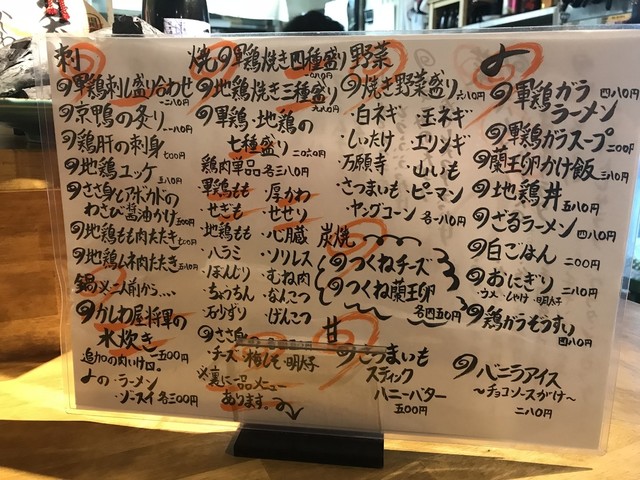 刺
軍鶏刺し盛り合わせ
一二八〇円
京鴨の炙り
鶏肝の刺身
七〇〇円
地鶏ユッケ
五八〇円
ささ身とアボカドの
わさび醤油かけ
五〇〇円
地鶏もも肉たたき
地鶏ムネ肉たたき
鍋 ※二人前から…
かしわ屋将軍の
水炊き
一五〇〇円
追加の肉い四。
〆の ラーメン
・ゾースイ 各三〇〇円
焼の軍鶏焼き四種盛り
地鶏焼き三種盛り
九八〇円
軍鶏・地鶏の
七種盛り
二〇六〇円
鶏肉単品 各三八〇円
軍鶏もも ・厚かわ
・せぎも ・せせり
地鶏もも ・心臓
・ハラミ ・ソリレス
・ぼんじり ・むね肉
・ちょうちん ・なんこつ
・石少ずり ・げんこつ
ささ身
・チーズ ・梅しそ・明太子
※裏に一品メニュー
あります。
野菜
焼き野菜盛り
六八〇円
・白ネギ ・玉ネギ
・しいたけ ・エリンギ
・万願寺 ・山いも
・さつまいも ・ピーマン
・ヤングコーン 各一八〇円
炭焼
つくねチーズ
つくね蘭王卵
各四五〇円
甘
さつまいも
スティック
ハニーバター
五〇〇円
〆
軍鶏ガラ
ラーメン
四八〇円
軍鶏ガラスープ
二〇〇円
蘭王卵かけ飯
三八〇円
地鶏丼
五八〇円
ざるラーメン
四八〇円
白ごはん
二〇〇円
おにぎり
二八〇円
・ウメ・しゃけ・明太子
鶏ガラぞうすい
四八〇円
バニラアイス
〜チョコソースがけ〜
二八〇円